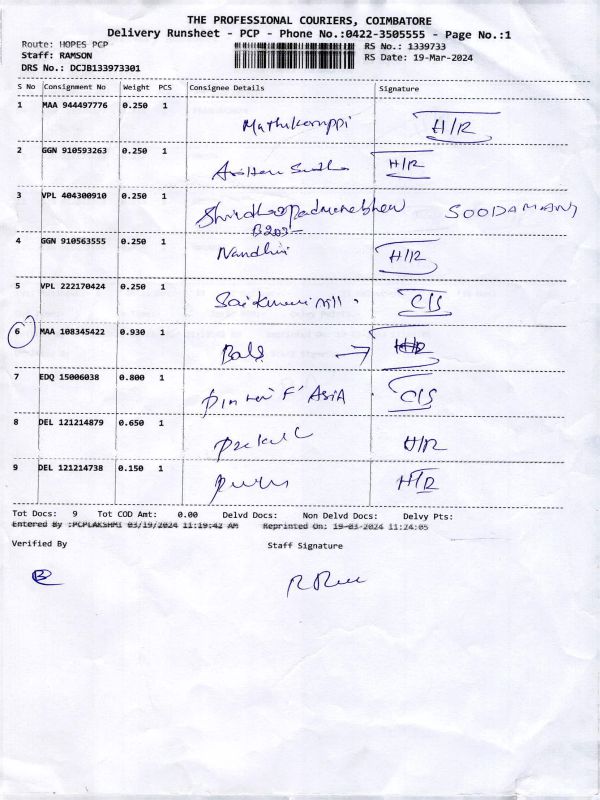 THE PROFESSIONAL COURIERS, COIMBATORE
Delivery Runsheet - PCP - Phone No.:0422-3505555 - Page No.:1
Route: HOPES PCP RS No.: 1339733
Staff: RAMSON RS Date: 19-Mar-2024
DRS No.: DCJB133973301
S No Consignment No Weight PCS Consignee Details Signature
1 MAA 944497776 0.250 1 H/R
2 GGN 910593263 0.250 1 H/R
3 VPL 404300910 0.250 1 SOODAMANY
4 GGN 910563555 0.250 1 Nandhini H/R
5 VPL 222170424 0.250 1 C/S
6 MAA 108345422 0.930 1
7 EDQ 15006038 0.800 1 F' ASIA C/S
8 DEL 121214879 0.650 1 H/R
9 DEL 121214738 0.150 1 H/R
Tot Docs: 9 Tot COD Amt: 0.00 Delvd Docs: Non Delvd Docs: Delvy Pts:
Entered By :PCPLAKSHMI 03/19/2024 11:19:42 AM Reprinted On: 19-03-2024 11:24:05
Verified By Staff Signature